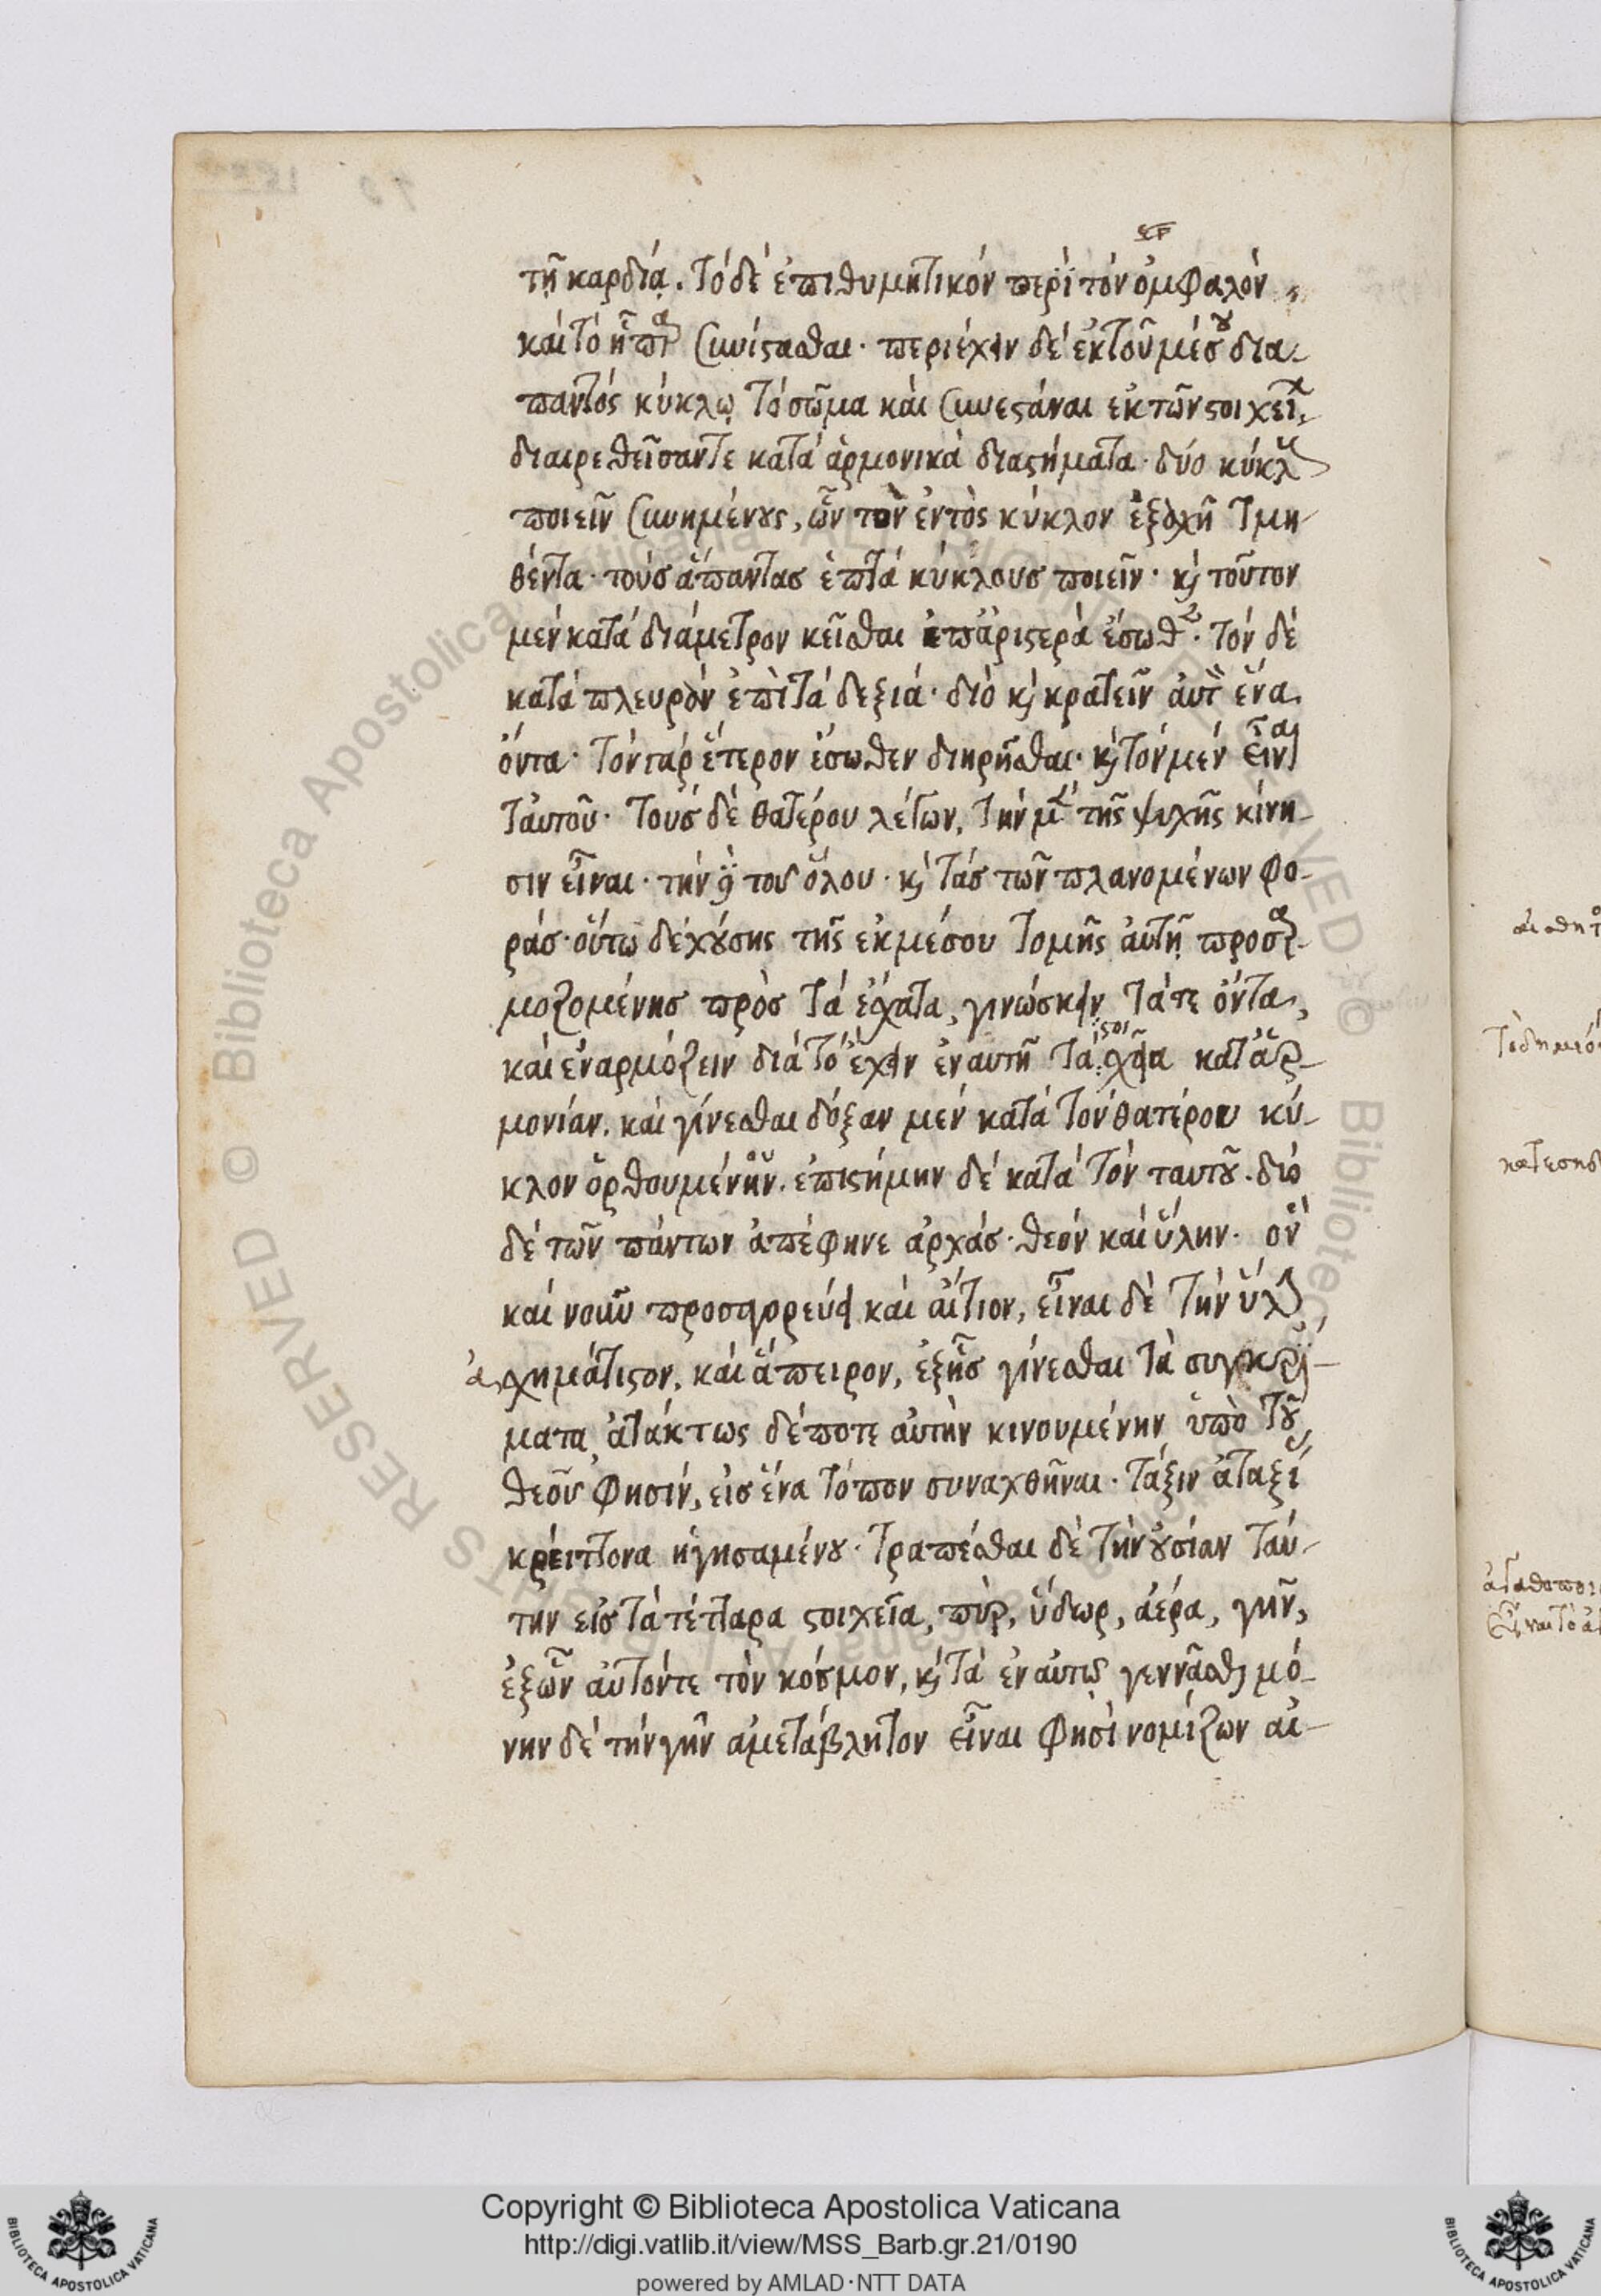 τῇ καρδίᾳ. τὸ δὲ ἐπιθυμητικόν περὶ τόν ὀμφαλόν
καὶ τὸ ἧπαρ συνίστασθαι· περιέχειν δὲ ἐκ τοῦ μέσου δια
παντός κύκλῳ τὸ σῶμα καὶ συνεστάναι ἐκ τῶν στοιχείων
διαιρεθεῖσαν τε κατὰ ἁρμονικὰ διαστήματα· δύο κύκλους
ποιεῖν συνημένους, ὧν τὸν ἐντὸς κύκλον ἑξαχῆ τμη-
θέντα· τοὺς ἅπαντας ἑπτὰ κύκλους ποιεῖν· καὶ τοῦτον
μέν κατὰ διάμετρον κεῖσθαι ἐπ' ἀριστερὰ ἔσωθεν· τόν δὲ
κατὰ πλευρὸν ἐπὶ τὰ δεξιά· διὸ καὶ κρατεῖν αὐτὸν ἕνα
ὄντα· τόν γὰρ ἕτερον ἔσωθεν διηρῆσθαι· καὶ τόν μέν εἶναι
ταὐτοῦ· τοὺς δὲ θατέρου λέγων, τὴν μὲν τῆς ψυχῆς κίνη-
σιν εἶναι· τὴν δὲ τοῦ ὅλου· καὶ τὰς τῶν πλανομένων φο-
ράς· οὕτω δ' ἐχούσης τῆς ἐκ μέσου τομῆς αὐτῇ προσαρ-
μοζομένης πρὸς τὰ ἔσχατα, γινώσκειν τά τε ὄντα,
καὶ ἐναρμόζειν διὰ τὸ ἔχειν ἐν αὐτῇ τὰ στοιχεῖα κατ' ἁρ-
μονίαν. καὶ γίνεσθαι δόξαν μέν κατὰ τόν θατέρου κύ-
κλον ὀρθούμενον. ἐπιστήμην δὲ κατὰ τόν ταυτοῦ. δύο
δὲ τῶν πάντων ἀπέφηνε ἀρχάς· θεόν καὶ ὕλην· ὃν
καὶ νοῦν προσαγορεύει καὶ αἴτιον, εἶναι δὲ τὴν ὕλην
ἀσχημάτιστον, καὶ ἄπειρον, ἐξ ἧς γίνεσθαι τὰ συγκρί-
ματα ἀτάκτως δέ ποτε αὐτὴν κινουμένην ὑπὸ τοῦ
θεοῦ φησίν, εἰς ἕνα τόπον συναχθῆναι· τάξιν ἀταξίας
κρείττονα ἡγησαμένου· τραπέσθαι δὲ τὴν οὐσίαν ταύ-
την εἰς τὰ τέτταρα στοιχεῖα, πῦρ, ὕδωρ, ἀέρα, γῆν,
ἐξ ὧν αὐτόν τε τὸν κόσμον, καὶ τὰ ἐν αὐτῷ γεννᾶσθαι μό-
νην δὲ τὴν γῆν ἀμετάβλητον εἶναι φησὶ νομίζων αἰ-
Copyright © Biblioteca Apostolica Vaticana
http://digi.vatlib.it/view/MSS_Barb.gr.21/0190
powered by AMLAD·NTT DATA